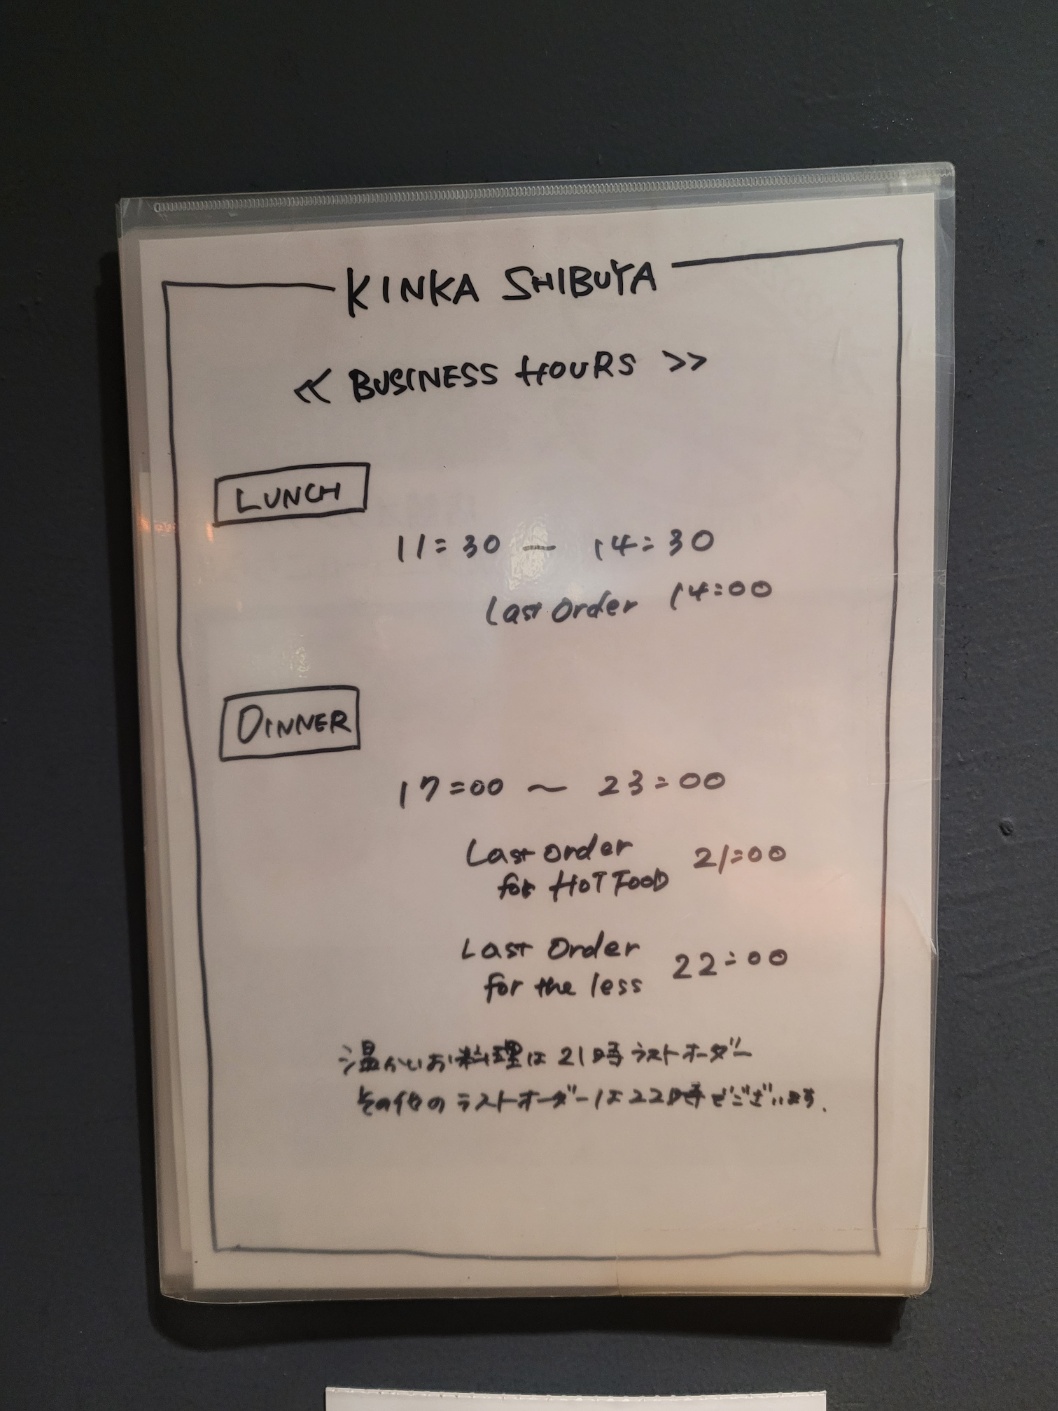 KINKA SHIBUYA
<< BUSINESS HOURS >>
LUNCH
11:30 — 14:30
Last Order 14:00
DINNER
17:00 ~ 23:00
Last order
for HOT FOOD 21:00
Last Order
for the less 22:00
温かいお料理は21時ラストオーダー
その他のラストオーダーは22時でございます.